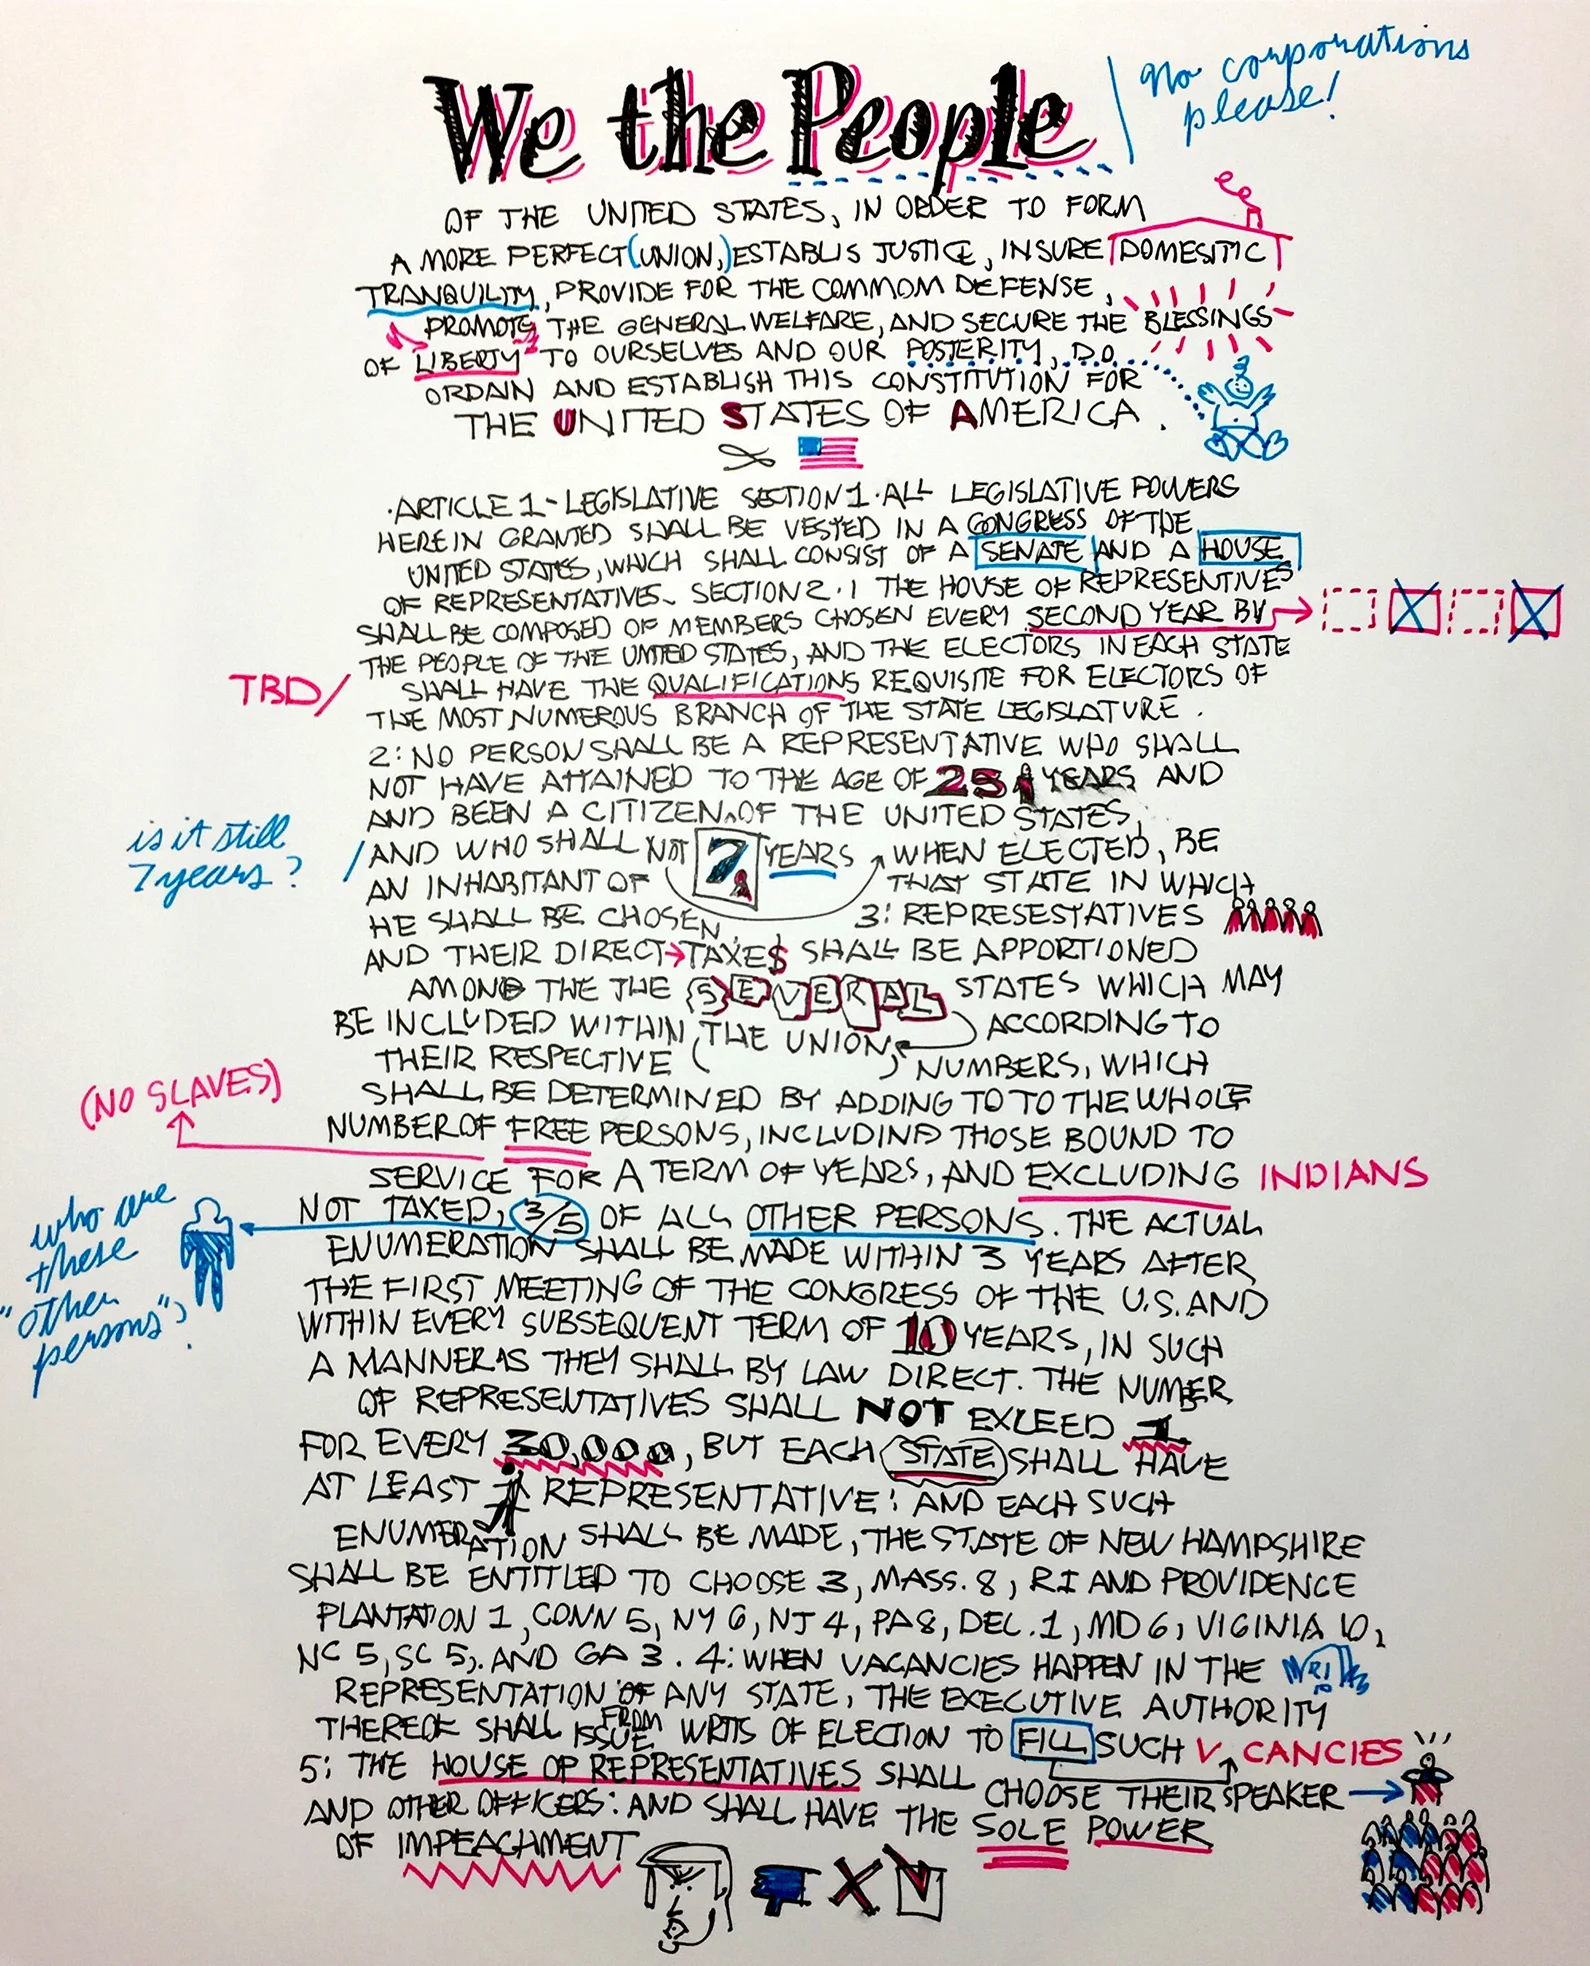 We the People
No corporations
please!
OF THE UNITED STATES, IN ORDER TO FORM
A MORE PERFECT (UNION,) ESTABLIS JUSTICE, INSURE DOMESITIC
TRANQUILITY, PROVIDE FOR THE COMMOM DEFENSE,
PROMOTE THE GENERAL WELFARE, AND SECURE THE BLESSINGS
OF LIBERTY TO OURSELVES AND OUR POSTERITY, DO
ORDAIN AND ESTABLISH THIS CONSTITUTION FOR
THE UNITED STATES OF AMERICA.
·ARTICLE 1- LEGISLATIVE SECTION 1· ALL LEGISLATIVE POWERS
HEREIN GRANTED SHALL BE VESTED IN A CONGRESS OF THE
UNITED STATES, WHICH SHALL CONSIST OF A SENATE AND A HOUSE
OF REPRESENTATIVES. SECTION 2·1 THE HOUSE OF REPRESENTIVES
SHALL BE COMPOSED OF MEMBERS CHOSEN EVERY SECOND YEAR BY
THE PEOPLE OF THE UNITED STATES, AND THE ELECTORS IN EACH STATE
TBD/
SHALL HAVE THE QUALIFICATIONS REQUISITE FOR ELECTORS OF
THE MOST NUMEROUS BRANCH OF THE STATE LEGISLATURE.
2: NO PERSON SHALL BE A REPRESENTATIVE WHO SHALL
NOT HAVE ATTAINED TO THE AGE OF 25 YEARS AND
AND BEEN A CITIZEN OF THE UNITED STATES,
is it still
7 years?
/AND WHO SHALL NOT 7 YEARS WHEN ELECTED, BE
AN INHABITANT OF THAT STATE IN WHICH
HE SHALL BE CHOSEN. 3: REPRESESTATIVES
AND THEIR DIRECT→TAXE$ SHALL BE APPORTIONED
AMONG THE THE SEVERAL STATES WHICH MAY
BE INCLUDED WITHIN THE UNION, ACCORDING TO
THEIR RESPECTIVE NUMBERS, WHICH
(NO SLAVES)
SHALL BE DETERMINED BY ADDING TO TO THE WHOLE
NUMBER OF FREE PERSONS, INCLUDING THOSE BOUND TO
SERVICE FOR A TERM OF YEARS, AND EXCLUDING INDIANS
who are
these
"other
persons"?
NOT TAXED, 3/5 OF ALL OTHER PERSONS. THE ACTUAL
ENUMERATION SHALL BE MADE WITHIN 3 YEARS AFTER
THE FIRST MEETING OF THE CONGRESS OF THE U.S. AND
WITHIN EVERY SUBSEQUENT TERM OF 10 YEARS, IN SUCH
A MANNER AS THEY SHALL BY LAW DIRECT. THE NUMBER
OF REPRESENTATIVES SHALL NOT EXCEED 1
FOR EVERY 30,000, BUT EACH STATE SHALL HAVE
AT LEAST 1 REPRESENTATIVE: AND EACH SUCH
ENUMERATION SHALL BE MADE, THE STATE OF NEW HAMPSHIRE
SHALL BE ENTITLED TO CHOOSE 3, MASS. 8, RI AND PROVIDENCE
PLANTATION 1, CONN 5, NY 6, NJ 4, PA 8, DEL. 1, MD 6, VIGINIA 10,
NC 5, SC 5, AND GA 3. 4: WHEN VACANCIES HAPPEN IN THE
REPRESENTATION OF ANY STATE, THE EXECUTIVE AUTHORITY
THEREOF SHALL ISSUE FROM WRITS OF ELECTION TO FILL SUCH V CANCIES
5: THE HOUSE OF REPRESENTATIVES SHALL CHOOSE THEIR SPEAKER
AND OTHER OFFICERS: AND SHALL HAVE THE SOLE POWER
OF IMPEACHMENT